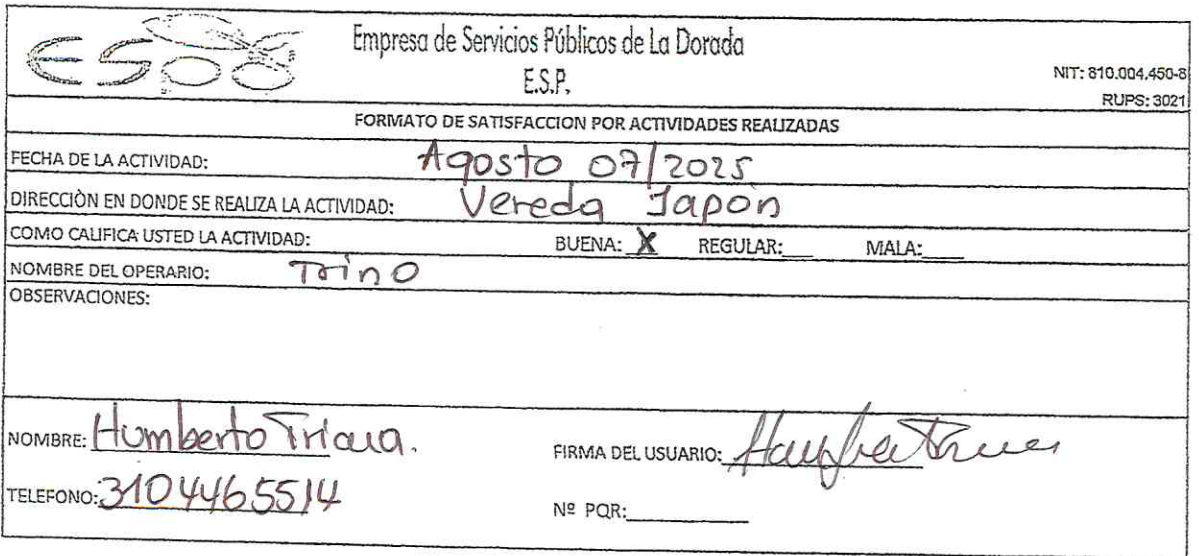 espd
Empresa de Servicios Públicos de La Dorada
E.S.P.
NIT: 810.004.450-8
RUPS: 3021
FORMATO DE SATISFACCION POR ACTIVIDADES REALIZADAS
FECHA DE LA ACTIVIDAD: Agosto 07/2025
DIRECCIÒN EN DONDE SE REALIZA LA ACTIVIDAD: Vereda Japon
COMO CALIFICA USTED LA ACTIVIDAD: BUENA: X REGULAR:___ MALA:____
NOMBRE DEL OPERARIO: Trino
OBSERVACIONES:
NOMBRE: Humberto Triana. FIRMA DEL USUARIO:
TELEFONO: 3104465514 Nº PQR:________